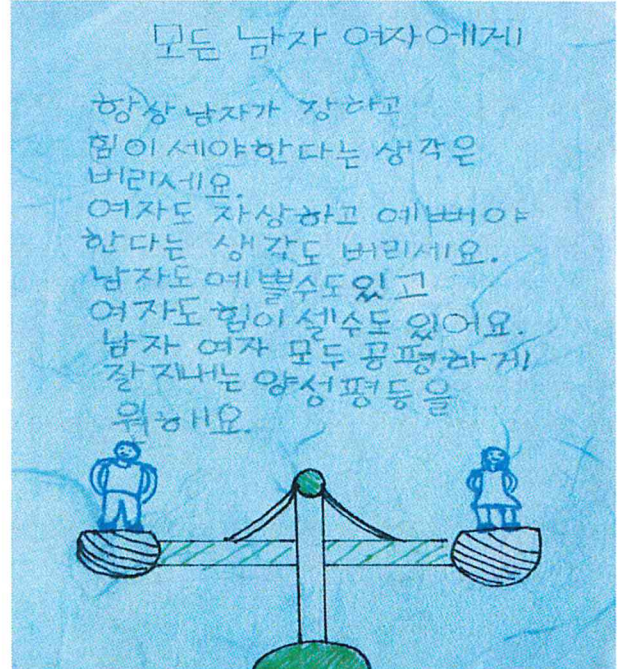 모든 남자 여자에게
항상 남자가 장하고
힘이 세야한다는 생각은
버리세요.
여자도 자상하고 예뻐야
한다는 생각도 버리세요.
남자도 예쁠수도있고
여자도 힘이 셀수도 있어요.
남자 여자 모두 공평하게
잘 지내는 양성평등을
원해요.